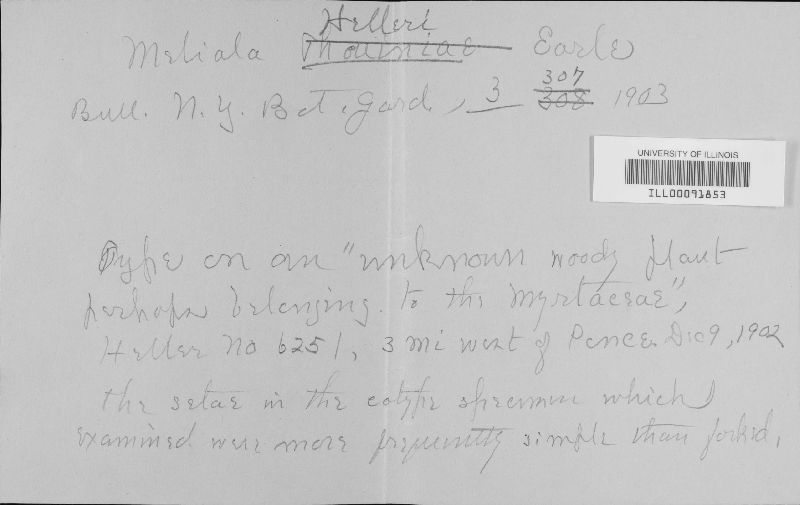 Helleri
Meliola Thouiniae Earle
Bull. N.Y. Bot. Gard., 3 307
308 1903
UNIVERSITY OF ILLINOIS
ILL00091853
Type on an "unknown woody plant
perhaps belonging to the Myrtaceae",
Heller No 6251, 3 mi west of Ponce. Dec 9, 1902
the setae in the cotype specimen which
examined were more frequently simple than forked.